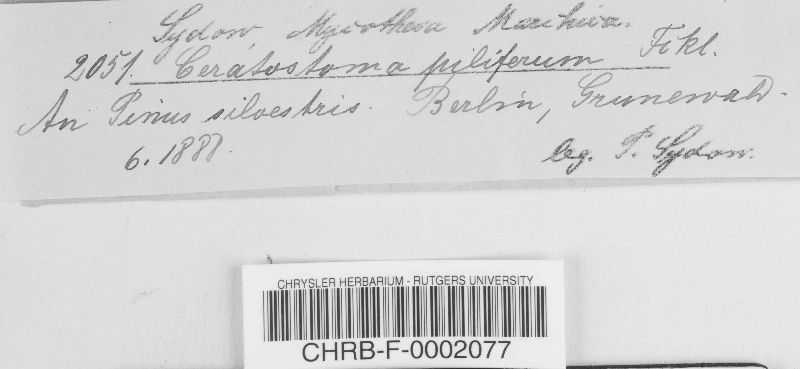 Sydow, Mycotheca Marchica.
2051. Ceratostoma piliferum Fckl.
An Pinus silvestris. Berlin, Grunewald.
6. 1888.
leg. P. Sydow.
CHRYSLER HERBARIUM - RUTGERS UNIVERSITY
CHRB-F-0002077